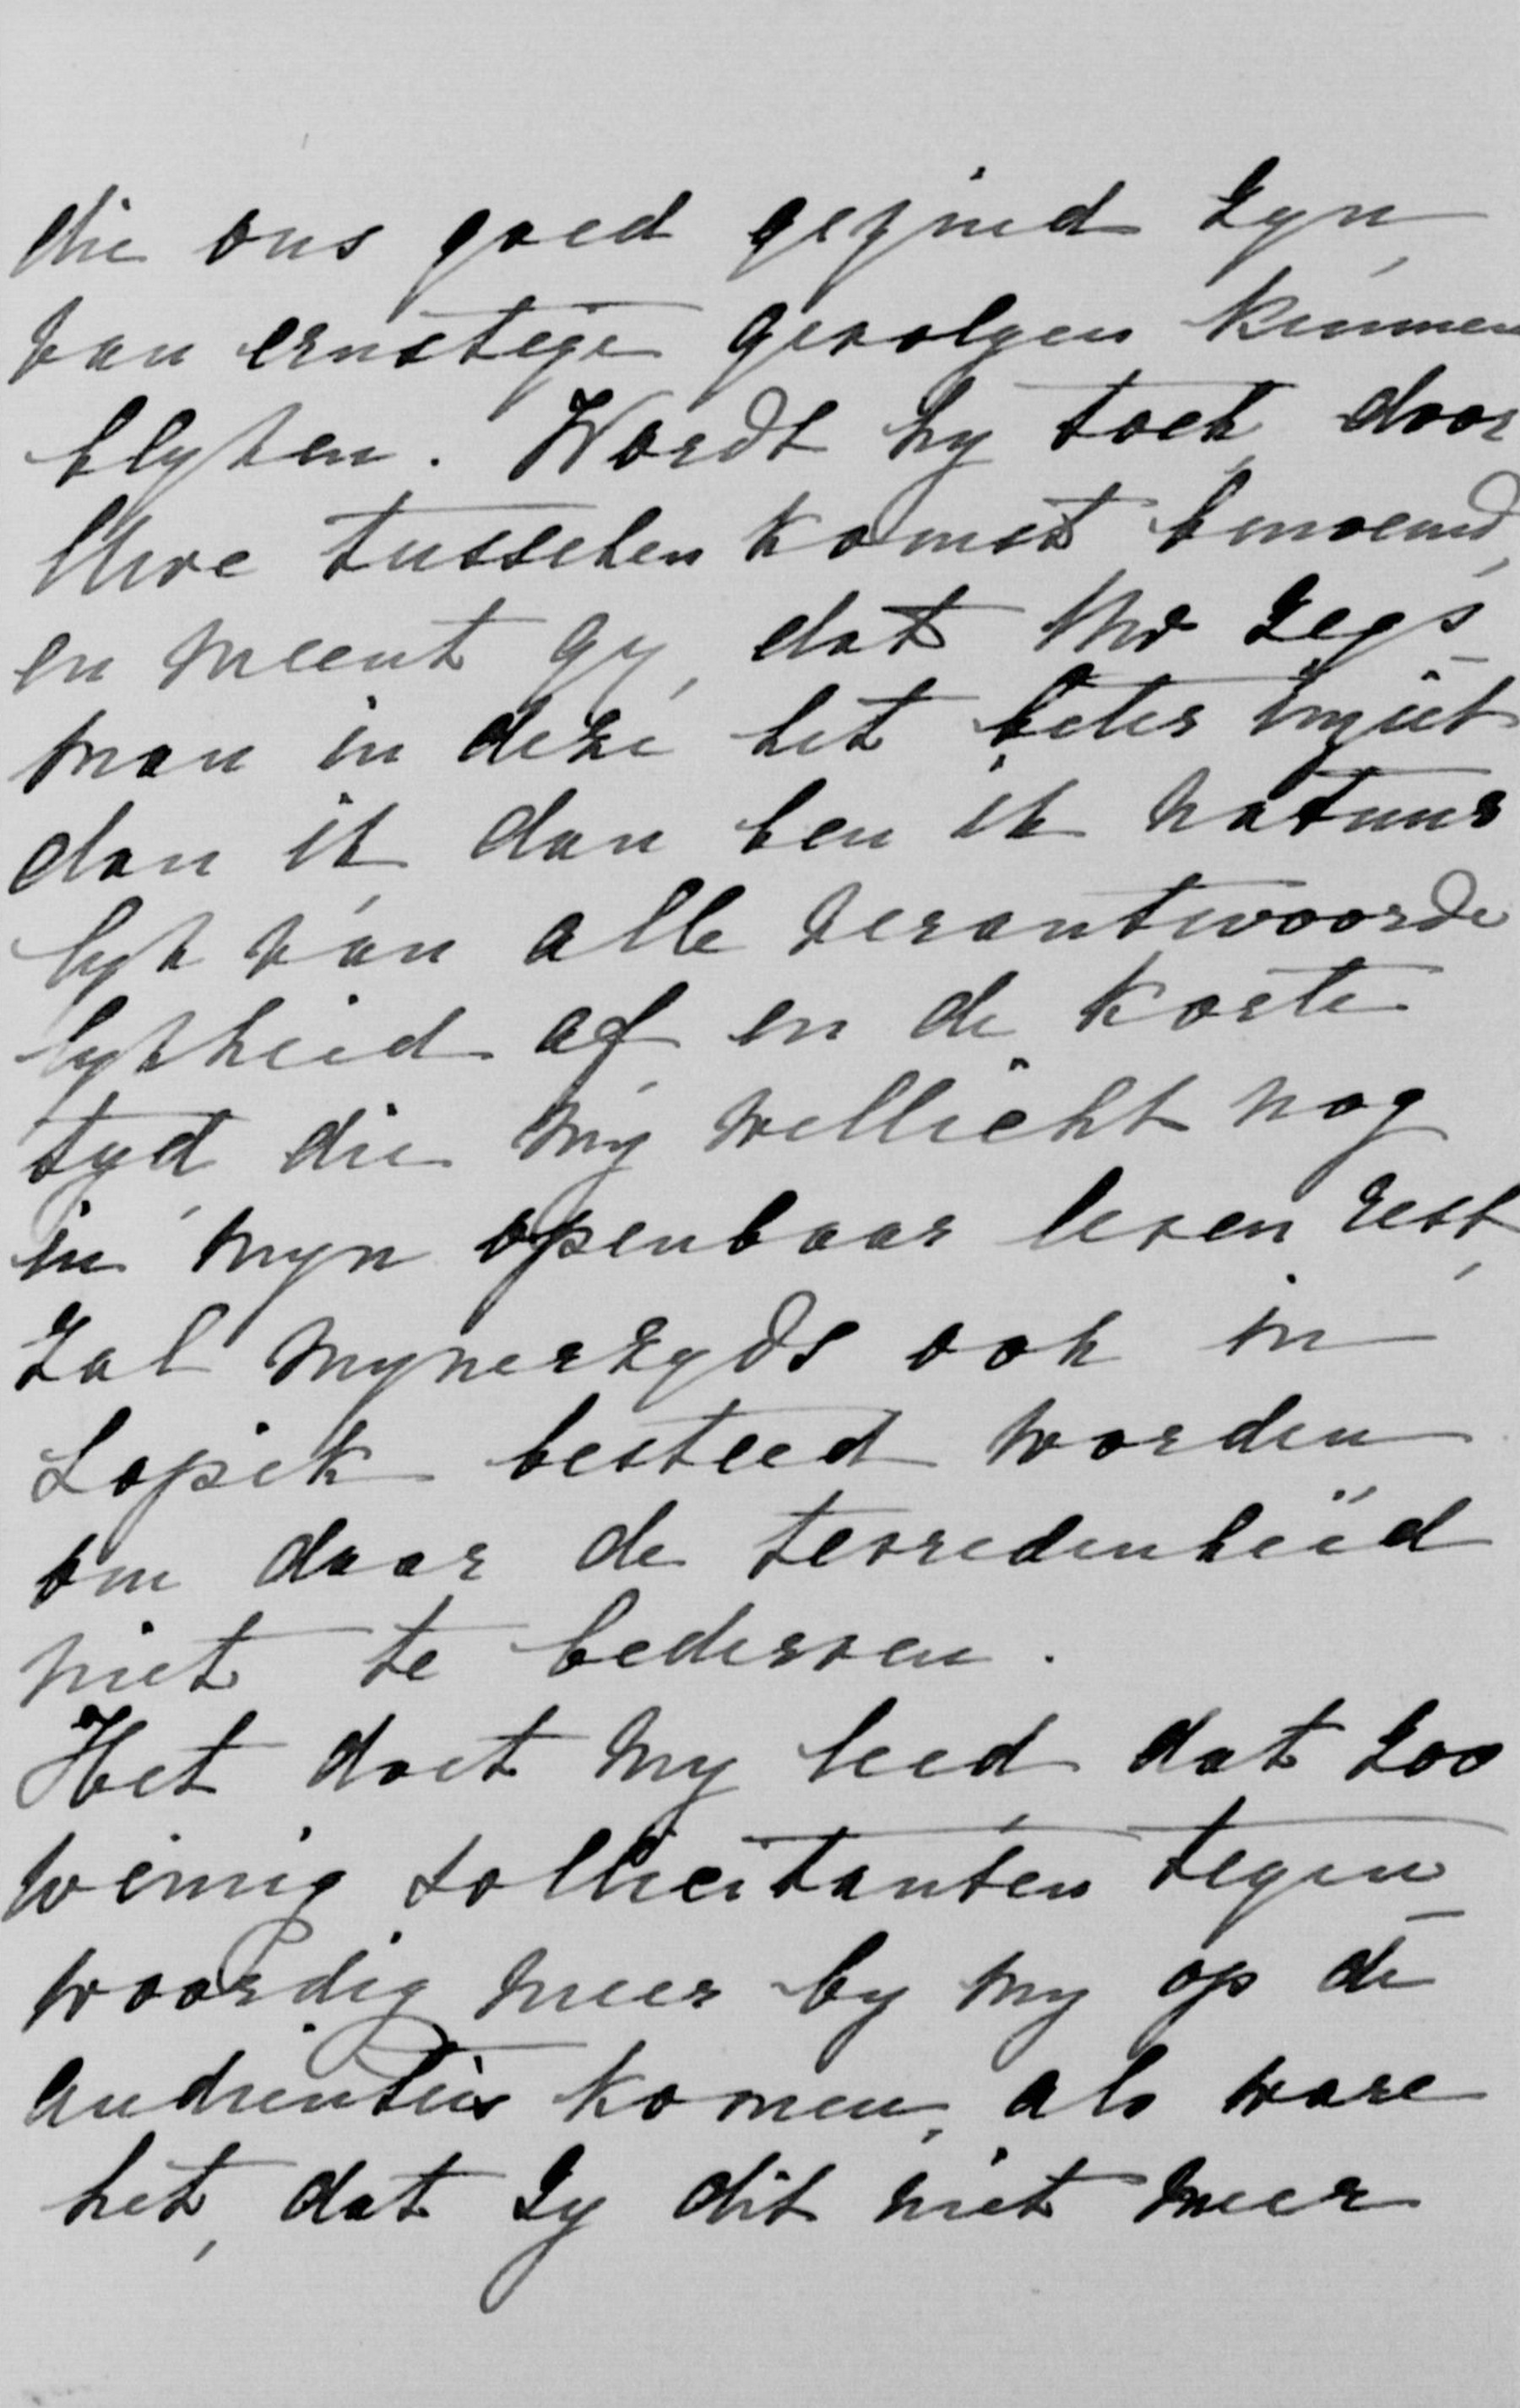 die ons goed gezind zyn,
van ernstige gevolgen kunnen
blyken. Wordt hy toch door
Uwe tusschenkomst benoemd,
en meent gy, dat Uw zegs-
man in deze het beter inziet
dan ik dan ben ik natuur
lyk van alle verantwoorde
lykheid af en de korte
tyd die my wellicht nog
in myn openbaar leven rest,
zal mynerzyds ook in
Lopik besteed worden
om daar de tevredenheid
niet te bederven.
Het doet my leed dat zoo
weinig sollicitanten tegen-
woordig meer by my op de
audientie komen, als ware
het, dat zy dit niet meer